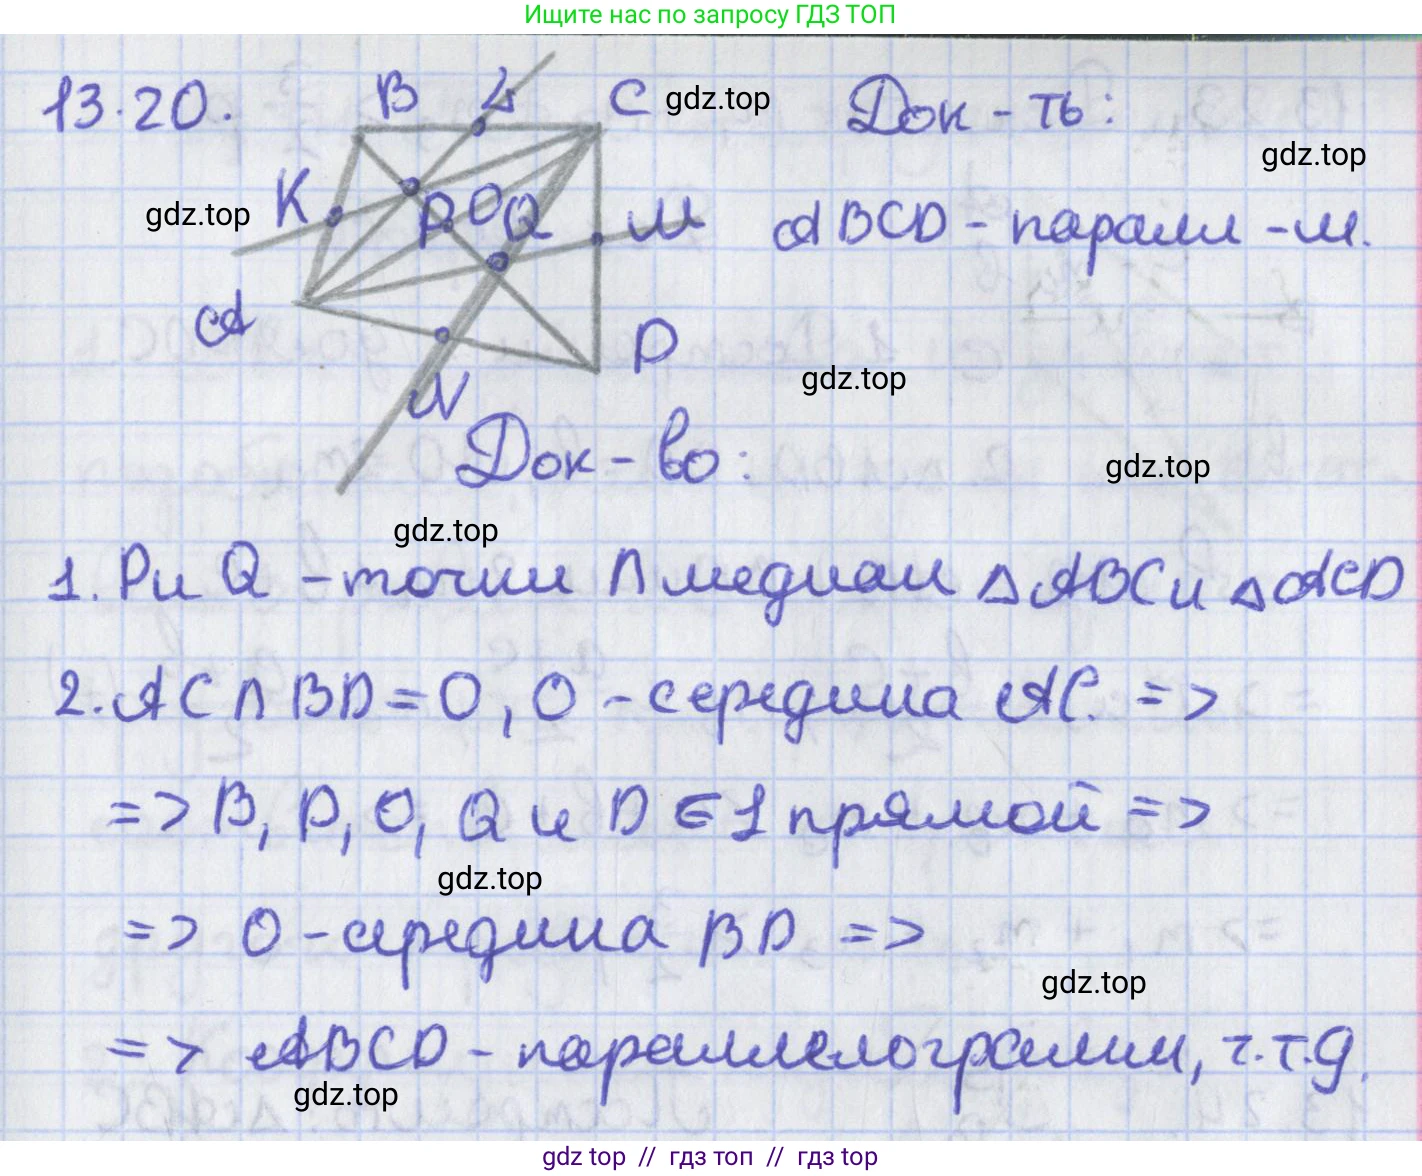 Ищите нас по запросу ГДЗ ТОП
13.20.
B L C gdz.top
Док-ть:
gdz.top
gdz.top K P O Q M
ABCD - паралл-м.
A D
gdz.top
N
Док-во:
gdz.top
gdz.top
1. P и Q - точки ∩ медиан △ABC и △ACD
2. AC ∩ BD = O, O - середина AC. =>
=> B, P, O, Q и D ∈ 1 прямой =>
gdz.top
=> O - середина BD =>
gdz.top
=> ABCD - параллелограмм, ч.т.д.
gdz.top
gdz top // гдз топ // гдз top